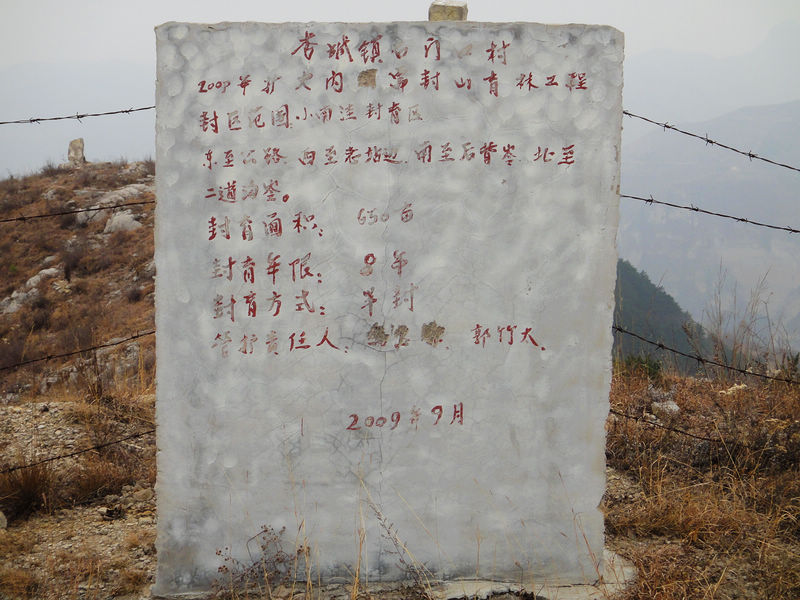 杏城镇 门 村
2009年扩大内 封山育林工程
封区范围 小南洼封育区
东至公路 西至老坫边 南至后背岺 北至
二道沟岺。
封育面积: 650亩
封育年限: 8年
封育方式: 半封
管护责任人: 郭竹大.
2009年9月